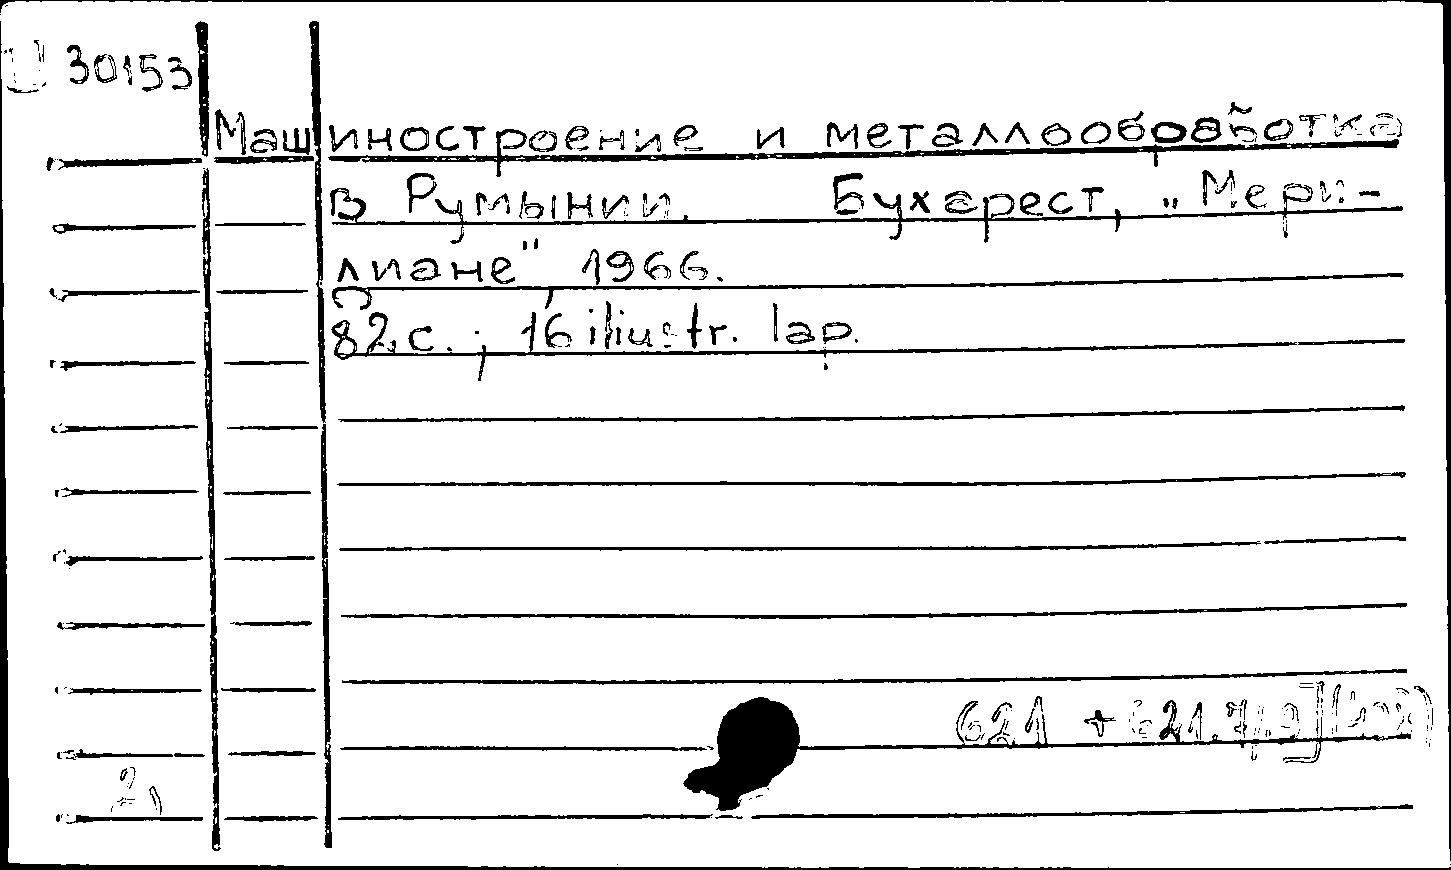 U 30153
Машиностроение и металлообработка
в Румынии. Бухарест, „Мери-
диане", 1966.
82 с.; 16 iliustr. lap.
621 + 621.7/.9]
2,